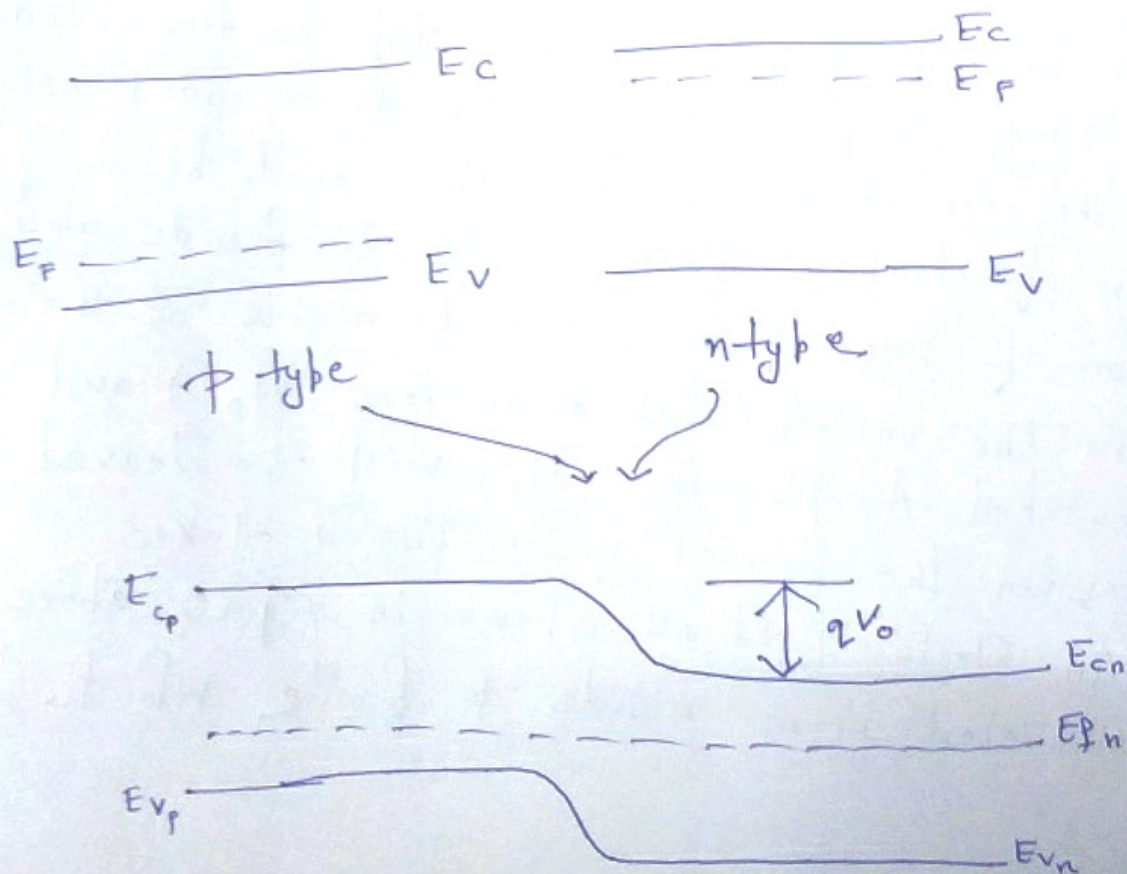 Ec Ec
EF
EF EV EV
p type n type
Ecp qVo
Ecn
Efn
Evp
Evn